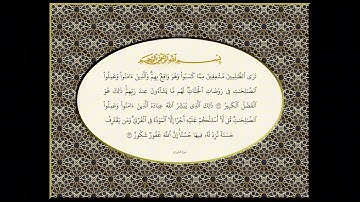 بسم الله الرحمن الرحيم
تَرَى ٱلظَّـٰلِمِينَ مُشْفِقِينَ مِمَّا كَسَبُوا۟ وَهُوَ وَاقِعٌۢ بِهِمْ وَٱلَّذِينَ ءَامَنُوا۟ وَعَمِلُوا۟
ٱلصَّـٰلِحَـٰتِ فِى رَوْضَاتِ ٱلْجَنَّاتِ لَهُم مَّا يَشَآءُونَ عِندَ رَبِّهِمْ ذَٰلِكَ هُوَ
ٱلْفَضْلُ ٱلْكَبِيرُ ذَٰلِكَ ٱلَّذِى يُبَشِّرُ ٱللَّهُ عِبَادَهُ ٱلَّذِينَ ءَامَنُوا۟ وَعَمِلُوا۟
ٱلصَّـٰلِحَـٰتِ قُل لَّآ أَسْـَٔلُكُمْ عَلَيْهِ أَجْرًا إِلَّا ٱلْمَوَدَّةَ فِى ٱلْقُرْبَىٰ وَمَن يَقْتَرِفْ
حَسَنَةً نَّزِدْ لَهُۥ فِيهَا حُسْنًا إِنَّ ٱللَّهَ غَفُورٌ شَكُورٌ